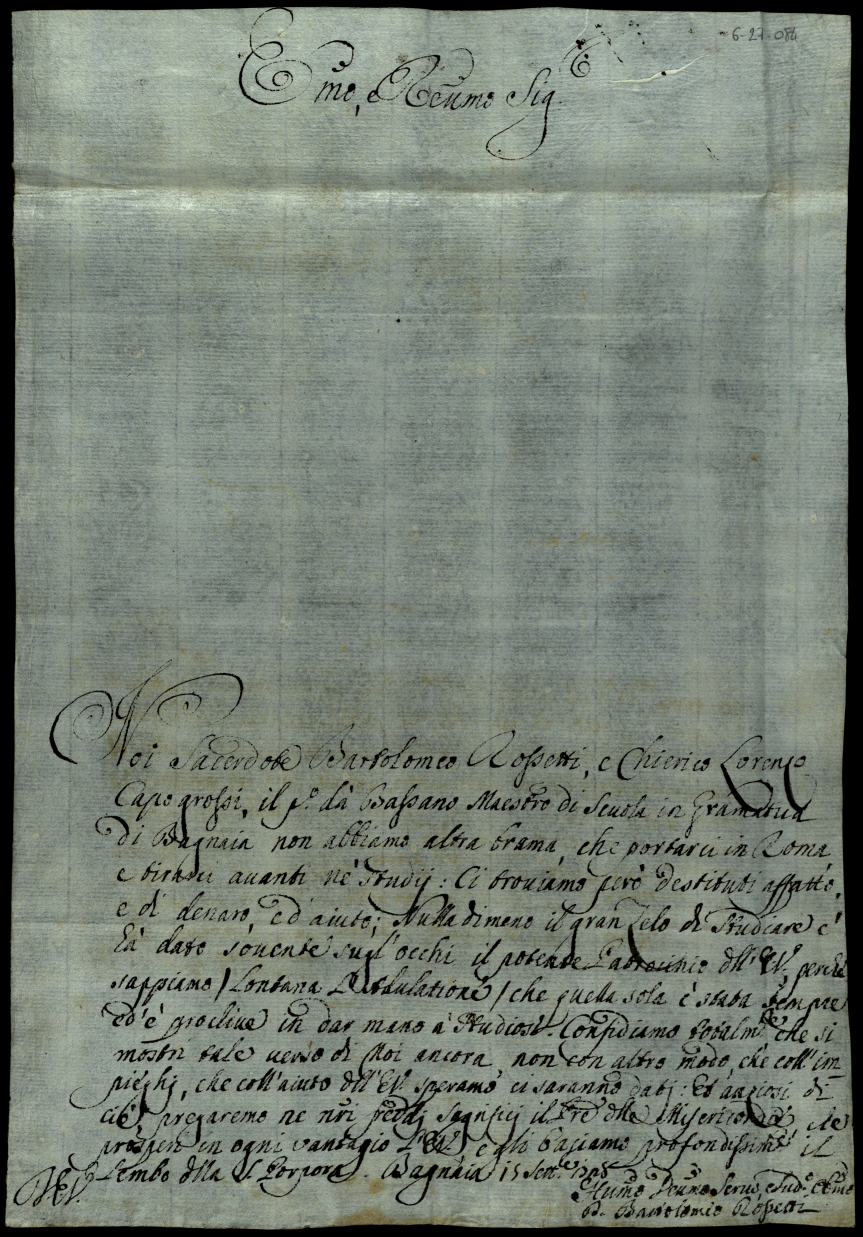 6-27-084
Emo, e Reumo Sig.re
Noi Sacerdote Bartolomeo Rossetti, e Chierico Lorenzo
Capogrossi, il p.o dà Bassano Maestro di Scuola in Gramatica
di Bagnaia non abbiamo altra brama, che portarci in Roma
e tirarci avanti nè studij: Ci troviamo però destituti affatto,
e di denaro, ed'aiuto; Nulladimeno il gran Zelo di studiare c'
hà dato sovente sugl'occhi il potente Patrocinio dll' EV. perche
sappiamo / Lontana l'Adulatione / che quella sola è stata sempre
ed'è proclive in dar mano a' studiosi. Confidiamo totalm.te che si
mostri tale verso di Noi ancora, non con altro modo, che coll'im
pieghi, che coll'aiuto dll'EV. speramo ci saranno dati: Et anziosi di
ciò pregaremo ne nri freddi sagrificij il Pre dlle Misericordie che
prosperi in ogni vantagio l'EV. e gli baciamo profondissim.te il
Lembo dlla S. Porpora. Bagnaia 15 Sett.re
D.V.E. Humo Deumo Servo, e Sud.o
D. Bartolomio Rossetti